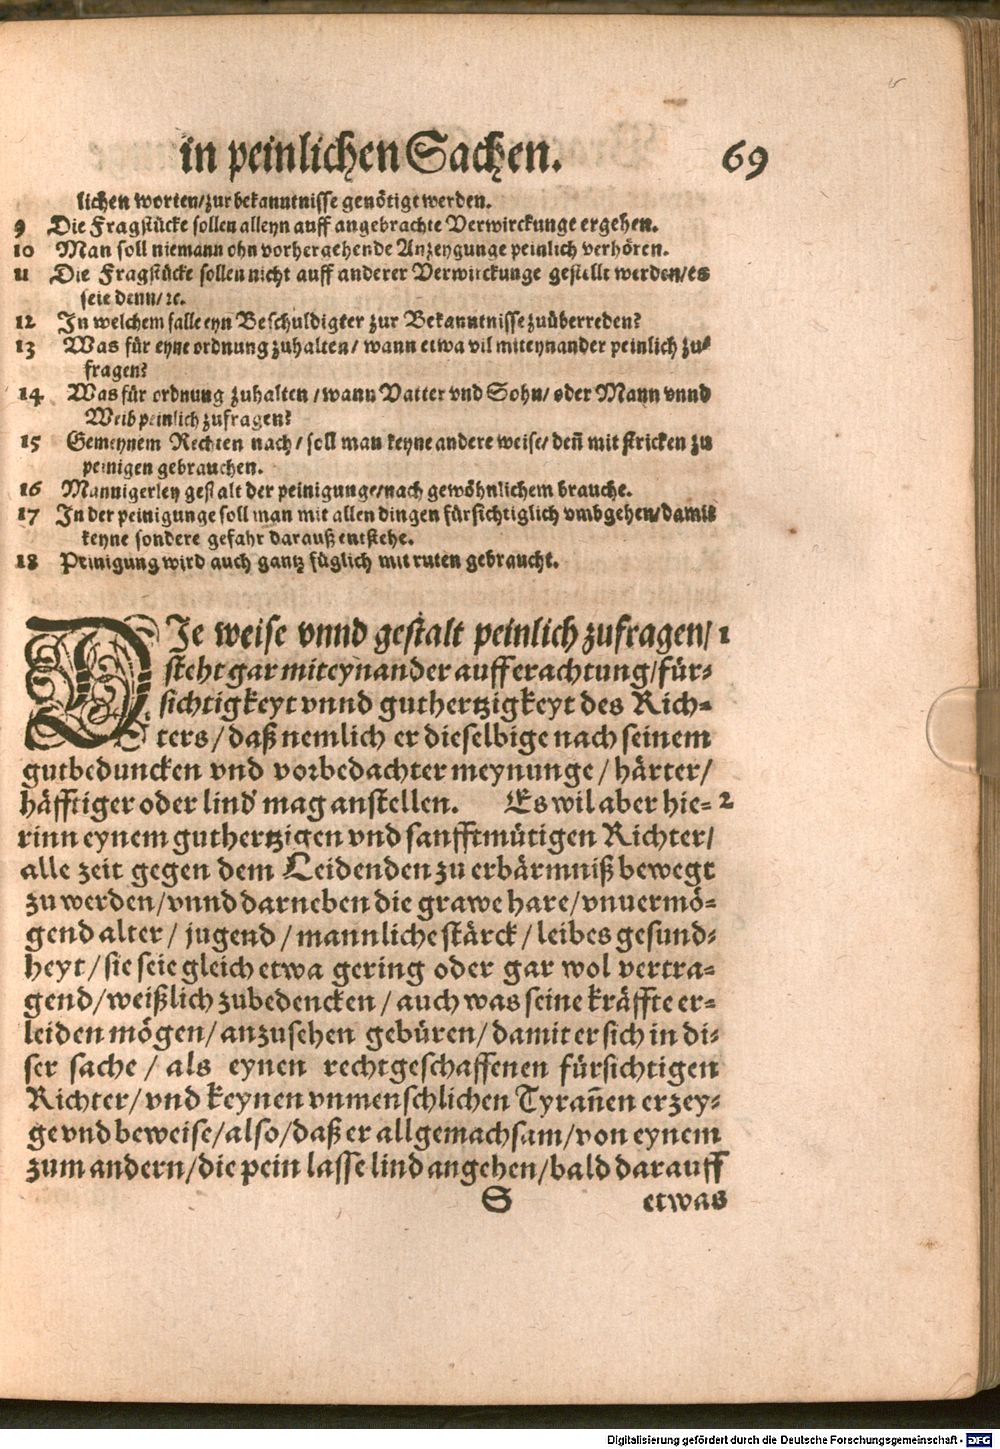 in peinlichen Sachen. 69
lichen worten/zur bekanntnisse genötigt werden.
9 Die Fragstücke sollen alleyn auff angebrachte Verwirckunge ergehen.
10 Man soll niemann ohn vorhergehende Anzeygunge peinlich verhören.
11 Die Fragstücke sollen nicht auff anderer Verwirckunge gestellt werden/es
seie denn/ꝛc.
12 In welchem falle eyn Beschuldigter zur Bekanntnisse zuüberreden?
13 Was für eyne ordnung zuhalten/ wann etwa vil miteynander peinlich zu⸗
fragen?
14 Was für ordnung zuhalten/wann Vatter vnd Sohn/ oder Mann vnnd
Weib peinlich zufragen?
15 Gemeynem Rechten nach/ soll man keyne andere weise/ deñ mit stricken zu
peinigen gebrauchen.
16 Mannigerley gestalt der peinigunge/nach gewöhnlichem brauche.
17 In der peinigunge soll man mit allen dingen fürsichtiglich vmbgehen/damit
keyne sondere gefahr darauß entstehe.
18 Peinigung wird auch gantz füglich mit ruten gebraucht.
DIe weise vnnd gestalt peinlich zufragen/ 1
steht gar miteynander auff erachtung/für⸗
sichtigkeyt vnnd guthertzigkeyt des Rich⸗
ters/daß nemlich er dieselbige nach seinem
gutbeduncken vnd vorbedachter meynunge/härter/
häfftiger oder lind mag anstellen. Es wil aber hie⸗ 2
rinn eynem guthertzigen vnd sanfftmütigen Richter/
alle zeit gegen dem Leidenden zu erbärmniß bewegt
zu werden/vnnd darneben die grawe hare/vnuermö⸗
gend alter/ jugend/mannliche stärck/leibes gesund⸗
heyt/sie seie gleich etwa gering oder gar wol vertra⸗
gend/weißlich zubedencken/auch was seine kräffte er⸗
leiden mögen/anzusehen gebüren/damit er sich in di⸗
ser sache/als eynen rechtgeschaffenen fürsichtigen
Richter/vnd keynen vnmenschlichen Tyrañen erzey⸗
ge vnd beweise/also/daß er allgemachsam/von eynem
zum andern/die pein lasse lind angehen/bald darauff
S etwas
Digitalisierung gefördert durch die Deutsche Forschungsgemeinschaft - DFG